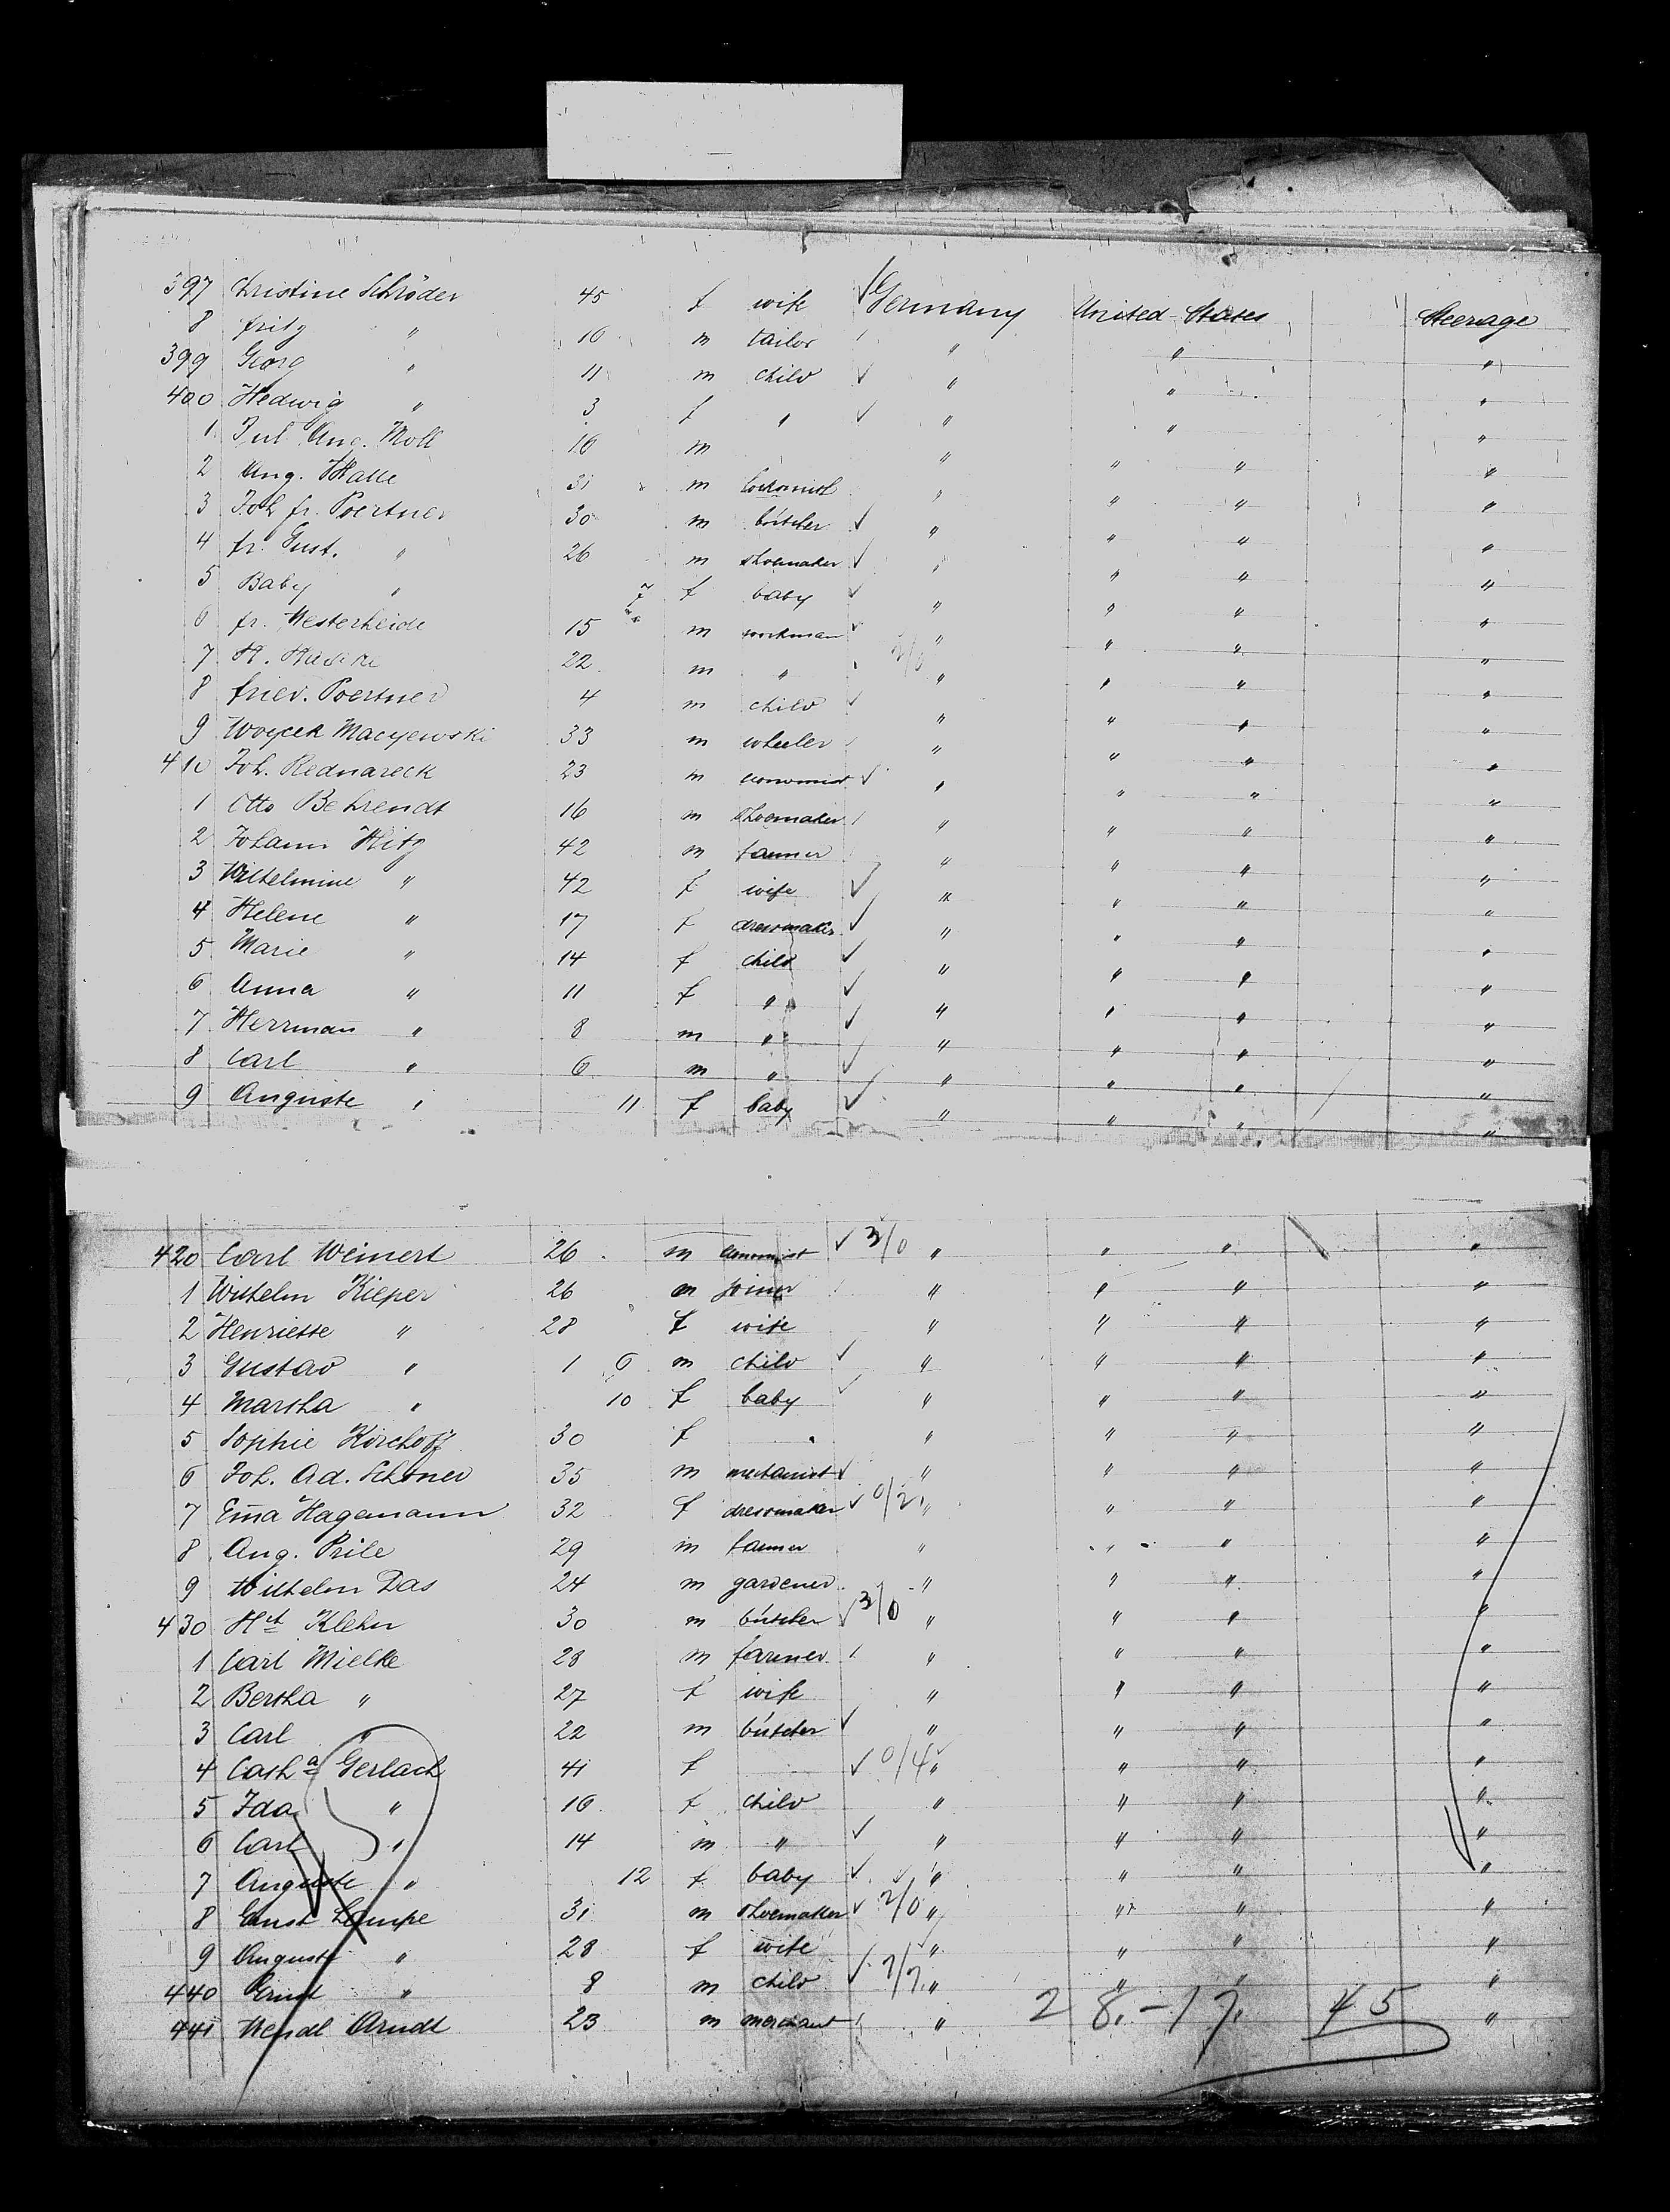 397 Christine Schröder 45 f wife Germany United States Steerage
8 Fritz " 16 m tailor " " "
399 Georg " 11 m child " " "
400 Hedwig " 3 f " " " "
1 Jul. Aug. Moll 16 m " " " "
2 Aug. Halle 31 m " " " "
3 Joh. fr. Poertner 30 m bútcher " " " "
4 fr. Gust. " 26 m shoemaker " " " "
5 Baby " 7 f baby " " " "
6 fr. Westerheide 15 m workman " " " "
7 H. 22 m " " " " "
8 fried. Poertner 4 m child " " " "
9 Woycek Macyewski 33 m wheeler " " " "
410 Joh. Rednareck 23 m economist " " " "
1 Otto Behrendt 16 m shoemaker " " " "
2 Johann Hitz 42 m farmer " " " "
3 Wilhelmine " 42 f wife " " " "
4 Helene " 17 f dressmaker " " " "
5 Marie " 14 f child " " " "
6 Anna " 11 f " " " " "
7 Herrman̄ " 8 m " " " " "
8 Carl " 6 m " " " " "
9 Auguste " 11 f baby " " " "
420 Carl Weinert 26 m economist 3/0 " " " "
1 Wilhelm Kieper 26 m joiner " " " "
2 Henriette " 28 f wife " " " "
3 Gustav " 1 6 m child " " " "
4 Martha " 10 f baby " " " "
5 Sophie Kirchoff 30 f " " " "
6 Joh. Ad. Schöner 35 m mechanist " " " "
7 Em̄a Hagemann 32 f dressmaker 0/2 " " " "
8 Aug. Prile 29 m farmer " " " "
9 Wilhelm Das 24 m gardener " " " "
430 Hch Klehn 30 m bútcher 3/0 " " " "
1 Carl Mielke 28 m farmer " " " "
2 Bertha " 27 f wife " " " "
3 Carl " 22 m bútcher " " " "
4 Catha Gerlach 41 f 0/4 " " " "
5 Ida " 16 f child " " " "
6 Carl " 14 m " " " " "
7 Auguste " 12 f baby " " " "
8 Ernst Lampe 31 m shoemaker 2/0 " " " "
9 Auguste " 28 f wife " " " "
440 Ernst " 8 m child 2/2 " " " "
441 Wendl Arndt 23 m merchant " 28.-17. 45 "